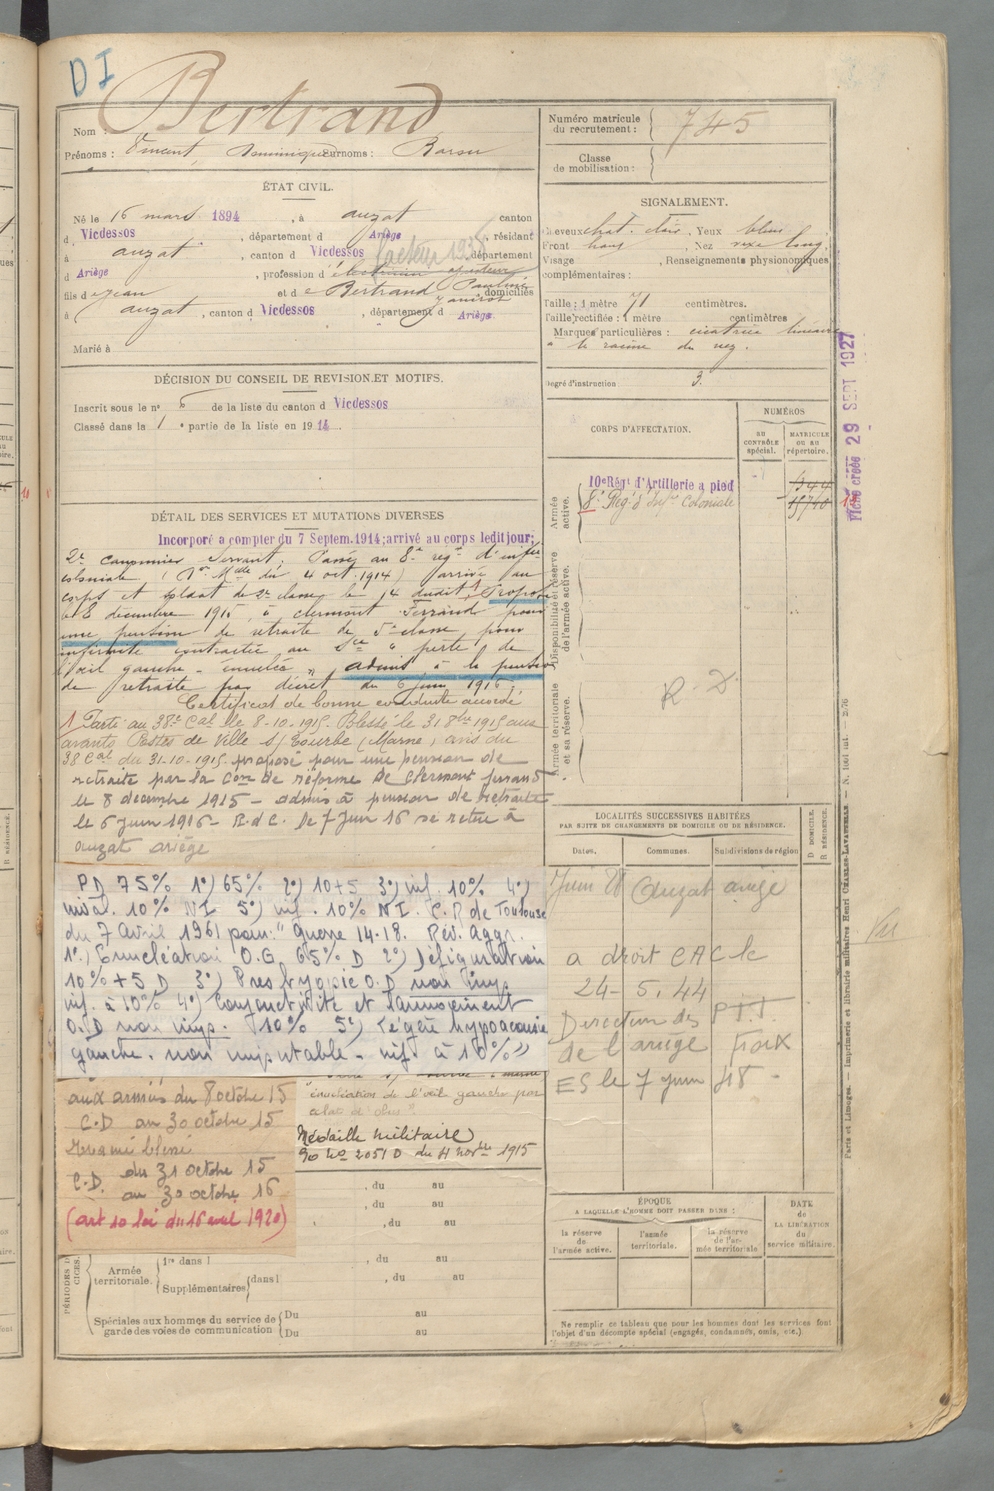 DI
Bertrand
Nom :
Prénoms : Vincent, Dominique Surnoms : Barou
Numéro matricule du recrutement : 745
Classe de mobilisation :
ÉTAT CIVIL.
Né le 16 mars 1894, à auzat canton
d Vicdessos, département d Ariège, résidant
à auzat, canton d Vicdessos département
facteur 1938
d Ariège, profession d
fils de Jean et de Bertrand Pauline domiciliés
à auzat, canton d Vicdessos, département d Ariège
Marié à
SIGNALEMENT.
Cheveux chat. clair, Yeux bleus
Front haut, Nez long
Visage , Renseignements physionomiques
complémentaires :
Taille : 1 mètre 71 centimètres.
Taille rectifiée : 1 mètre centimètres
Marques particulières : cicatrice linéaire
à la racine du nez.
Degré d'instruction : 3.
Fiche créée 29 SEPT 1927
DÉCISION DU CONSEIL DE REVISION ET MOTIFS.
Inscrit sous le n° 6 de la liste du canton d Vicdessos
Classé dans la 1e partie de la liste en 1914.
DÉTAIL DES SERVICES ET MUTATIONS DIVERSES
Incorporé a compter du 7 Septem. 1914; arrivé au corps ledit jour;
2e canonnier servant; Passé au 8e reg. d'infie
coloniale. ( Mlle du 4 oct. 1914) arrivé au
corps et soldat de 2e classe le 14 dudit, 1 Proposé
le 8 décembre 1915, à clermont Ferrand pour
une pension de retraite de 5e classe pour
infirmité contractée au Sce "perte de
l'oeil gauche - énuclée", admis à la pension
de retraite par décret du 6 juin 1916.
Certificat de bonne conduite accordé
1 Parti au 38e Cal le 8-10-1915. Blessé le 31 8bre 1915 aux
avants Postes de Ville s/ Tourbe (Marne) avis du
38 Cal du 31-10-1915 proposé pour une pension de
retraite par la Con de réforme de Clermont ferrand
le 8 décembre 1915 - admis à pension de retraite
le 6 juin 1916 - R.d.C. De 7 Juin 16 se retire à
auzat ariège
PD 75% 1°) 65% 2°) 10+5 3°) inf. 10% 4°)
10% NI 5°) inf. 10% NI. C.R de Toulouse
du 7 Avril 1961 pour: "Guerre 14-18. Rév. Aggr.
1°) Enucléation O.G. 65% D 2°) Défiguration
10%+5 D 3°) Presbyopie O.D non imp
inf. à 10% 4°) Conjonctivite et larmoiement
O.D non imp. 10% 5°) Légère hypoacousie
gauche. non imputable - inf. à 10%"
aux armées du 8 octobre 15
C.D au 30 octobre 15
Interamé blessé
C.D. du 31 octobre 15
au 30 octobre 16
(art 10 loi du 16 avril 1920)
énucléation de l'oeil gauche par
éclats d'obus"
Médaille militaire
JO No 2051 D du 4 Novbre 1915
, du au
, du au
, du au
PÉRIODES D
CICES.
Armée territoriale.
1re dans l , du au
Supplémentaires dans l , du au
Spéciales aux hommes du service de garde des voies de communication
Du au
Du au
CORPS D'AFFECTATION.
NUMÉROS
AU CONTRÔLE spécial.
MATRICULE OU AU répertoire.
Armée active.
10e Régt d'Artillerie a pied
8e Reg't d' Infie Coloniale 15740
Disponibilité et réserve de l'armée active.
Armée territoriale et sa réserve.
R. D.
LOCALITÉS SUCCESSIVES HABITÉES
PAR SUITE DE CHANGEMENTS DE DOMICILE OU DE RÉSIDENCE.
Dates. Communes. Subdivisions de région
D DOMICILE.
R RÉSIDENCE.
Juin Auzat ariège
a droit CAC le
24-5.44
Direction des PTT
de l'ariège Foix
ES le 7 juin 48 -
ÉPOQUE
A LAQUELLE L'HOMME DOIT PASSER DANS :
la réserve de l'armée active.
l'armée territoriale.
la réserve de l'armée territoriale
DATE de LA LIBÉRATION du service militaire.
Ne remplir ce tableau que pour les hommes dont les services font
l'objet d'un décompte spécial (engagés, condamnés, omis, etc.).
Paris et Limoges. — Imprimerie et librairie militaires Henri CHARLES-LAVAUZELLE